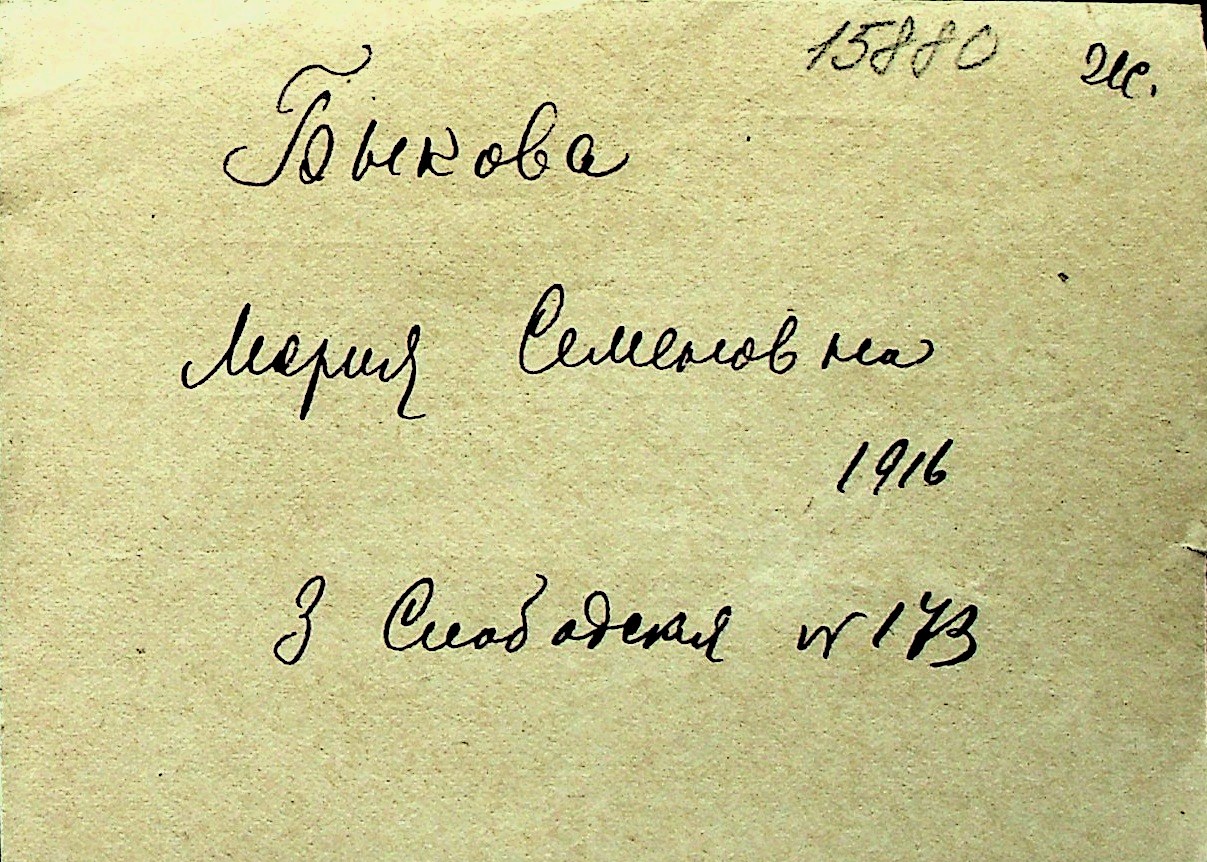 15880 Ж.
Быкова
Мария Семеновна
1916
3 Слободская № 173